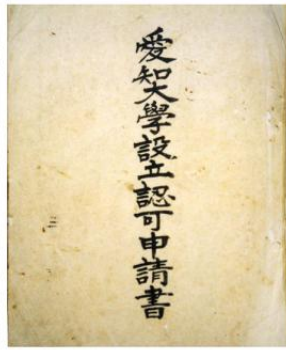 愛知大學設立認可申請書